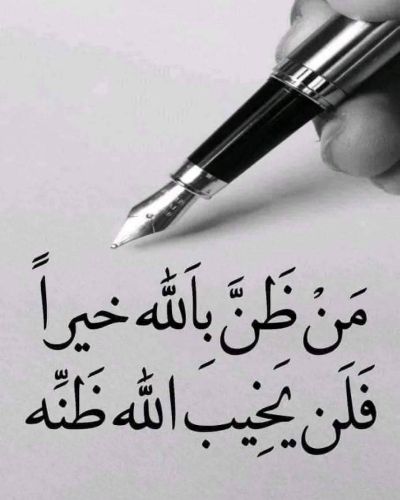 مَنْ ظَنَّ بِاَللّٰه خيراً
فَلَن يَخِيبَ اللّٰه ظَنِّه